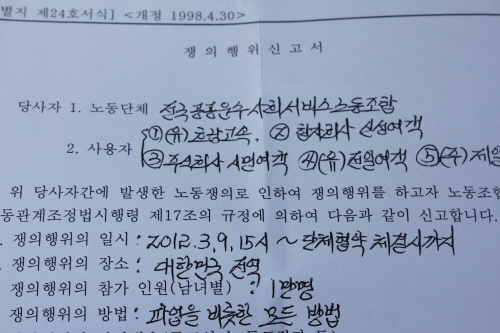 별지 제24호서식] <개정 1998.4.30>
쟁의행위신고서
당사자 1. 노동단체 전국공공운수사회서비스노동조합
2. 사용자 ①(유)호남고속, ② 합자회사 신성여객
③ 주식회사 시민여객 ④(유)전일여객 ⑤(주)제일
위 당사자간에 발생한 노동쟁의로 인하여 쟁의행위를 하고자 노동조합
동관계조정법시행령 제17조의 규정에 의하여 다음과 같이 신고합니다.
. 쟁의행위의 일시 : 2012.3.9. 15시 ~ 단체협약 체결시까지
. 쟁의행위의 장소 : 대한민국 전역
쟁의행위의 참가 인원(남녀별) : 1만명
쟁의행위의 방법 : 파업을 비롯한 모든 방법